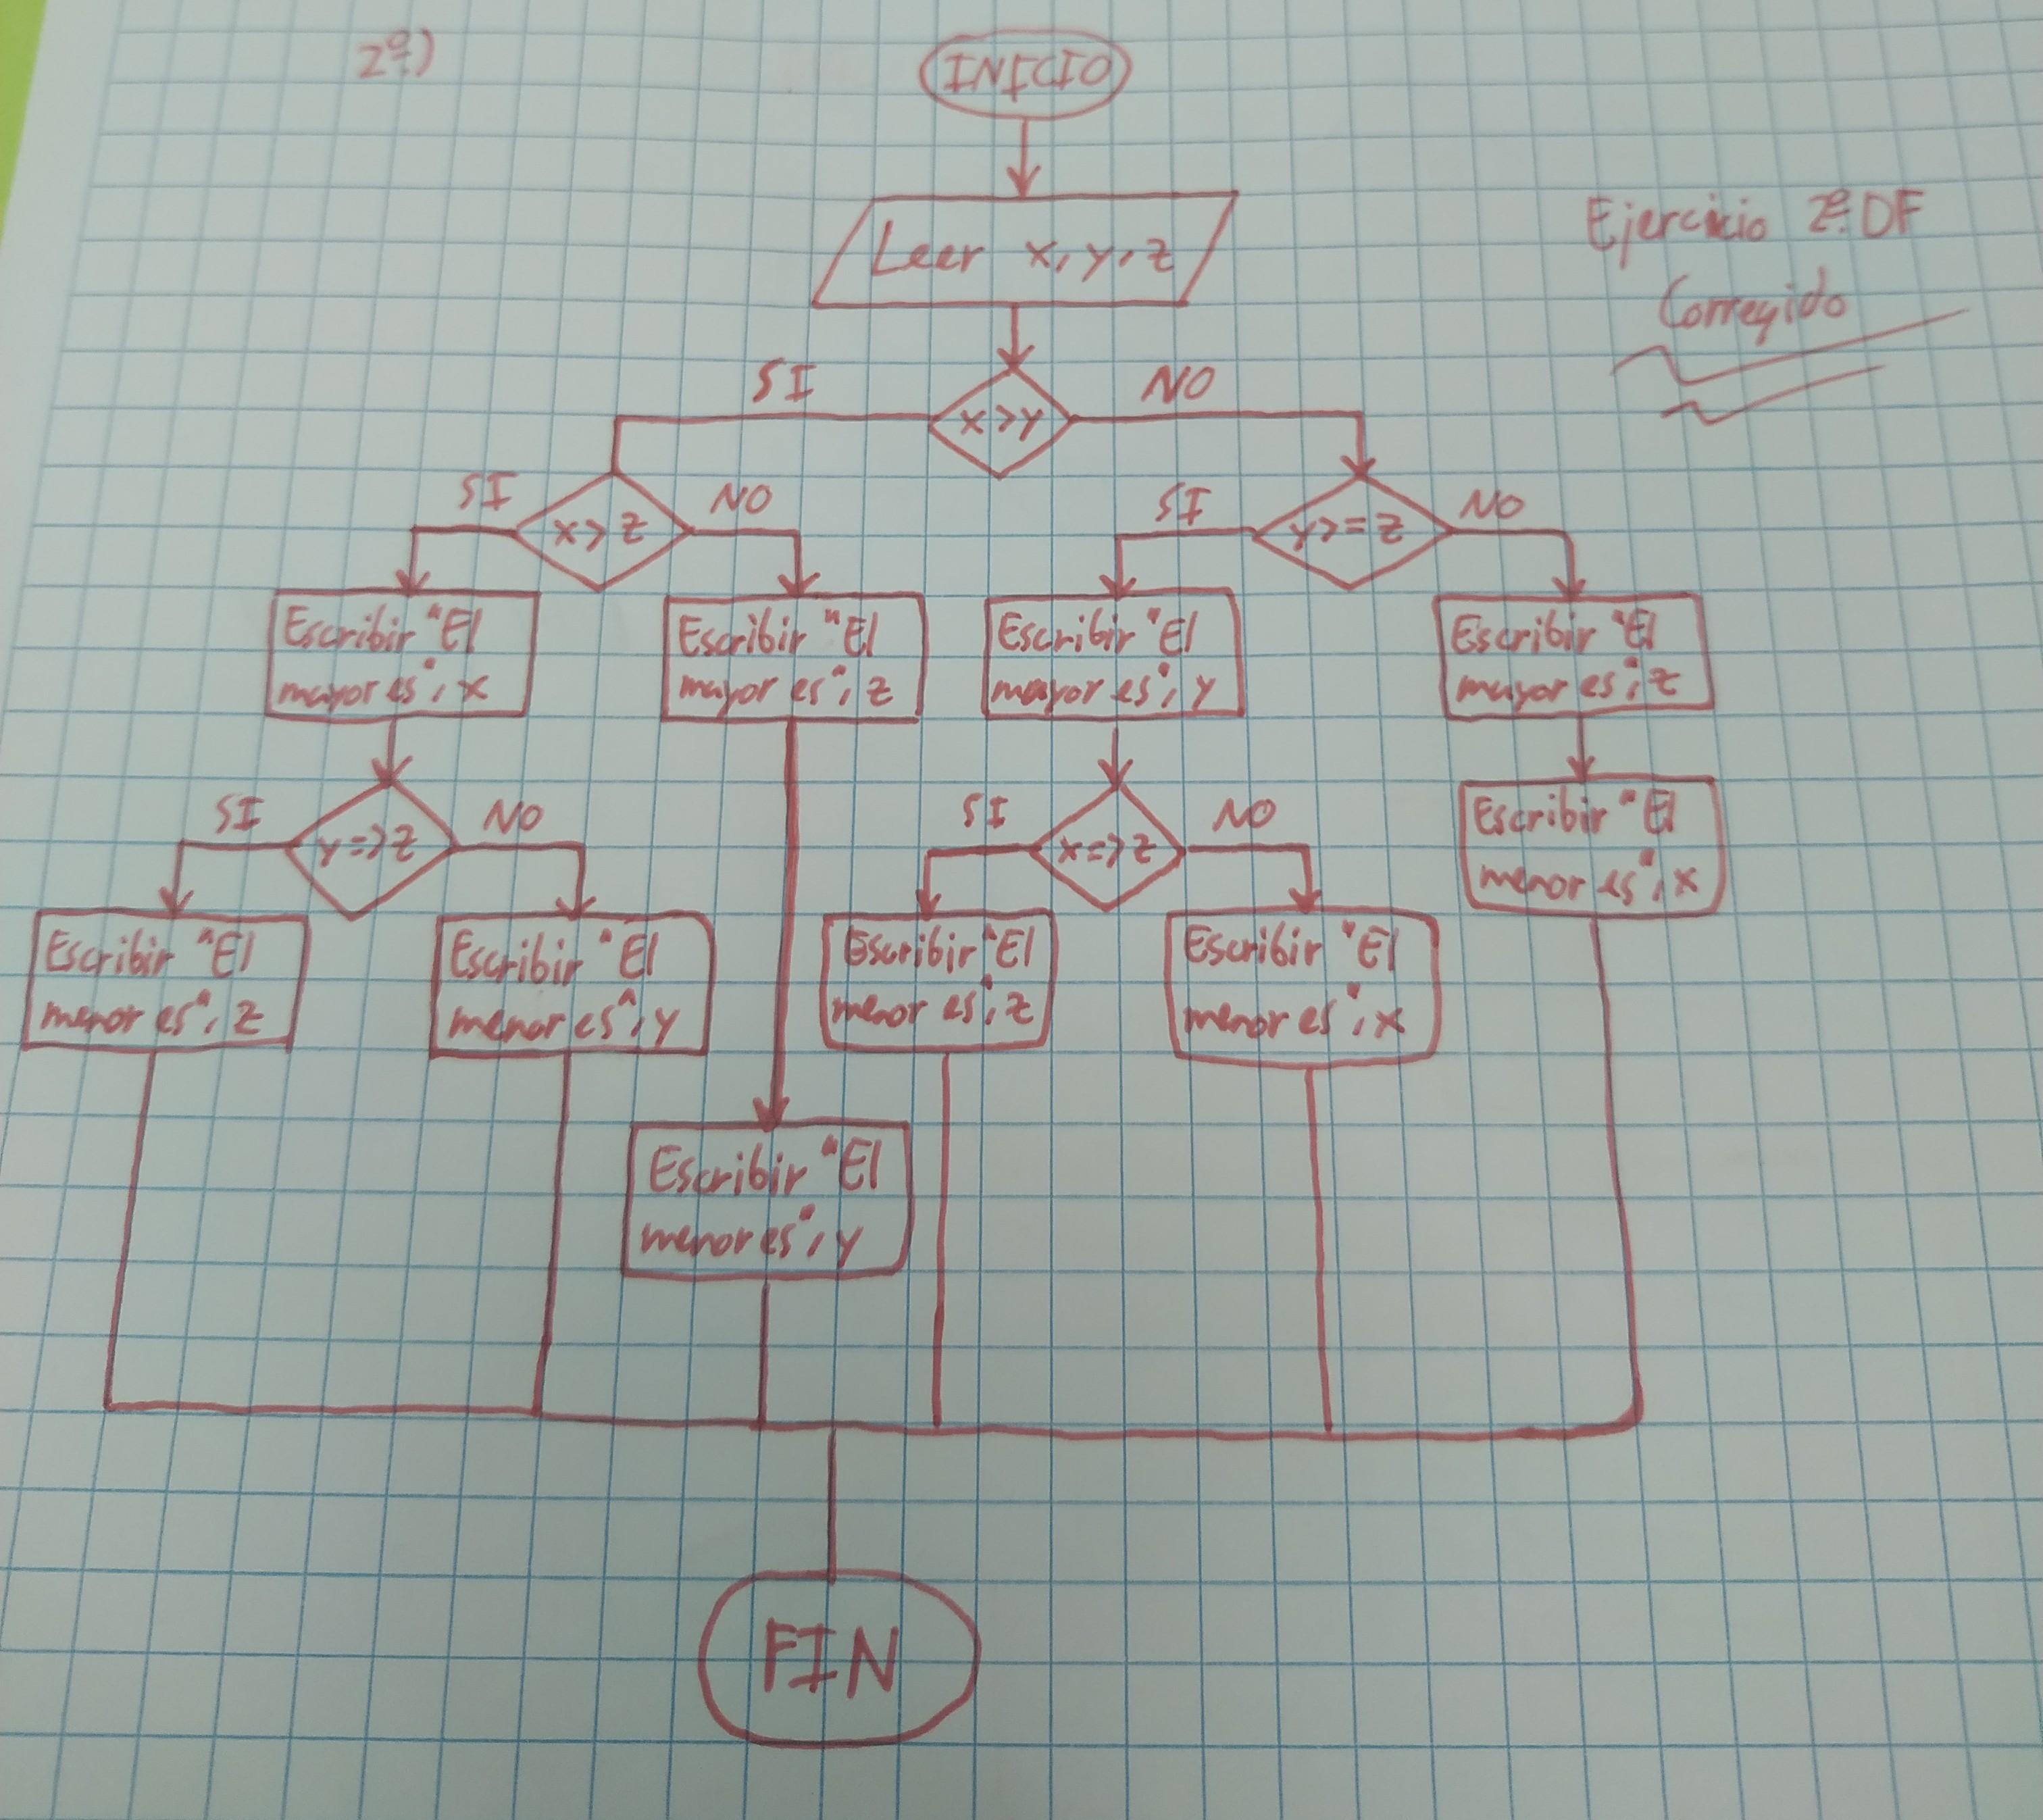 2º)
INICIO
Leer x, y, z
Ejercicio 2º DF
Corregido
SI
NO
x > y
SI
NO
x > z
SI
NO
y >= z
Escribir "El
mayor es", x
Escribir "El
mayor es", z
Escribir "El
mayor es", y
Escribir "El
mayor es", z
SI
NO
y => z
SI
NO
x => z
Escribir "El
menor es", x
Escribir "El
menor es", z
Escribir "El
menor es", y
Escribir "El
menor es", z
Escribir "El
menor es", x
Escribir "El
menor es", y
FIN